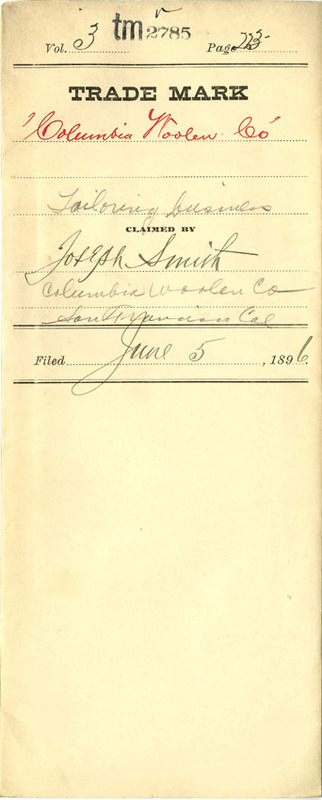 Vol. 3 tm 2785 Page
TRADE MARK
"Columbia Woolen Co"
Tailoring business
CLAIMED BY
Joseph Smith
Columbia Woolen Co
San Francisco Cal
Filed June 5, 1896.